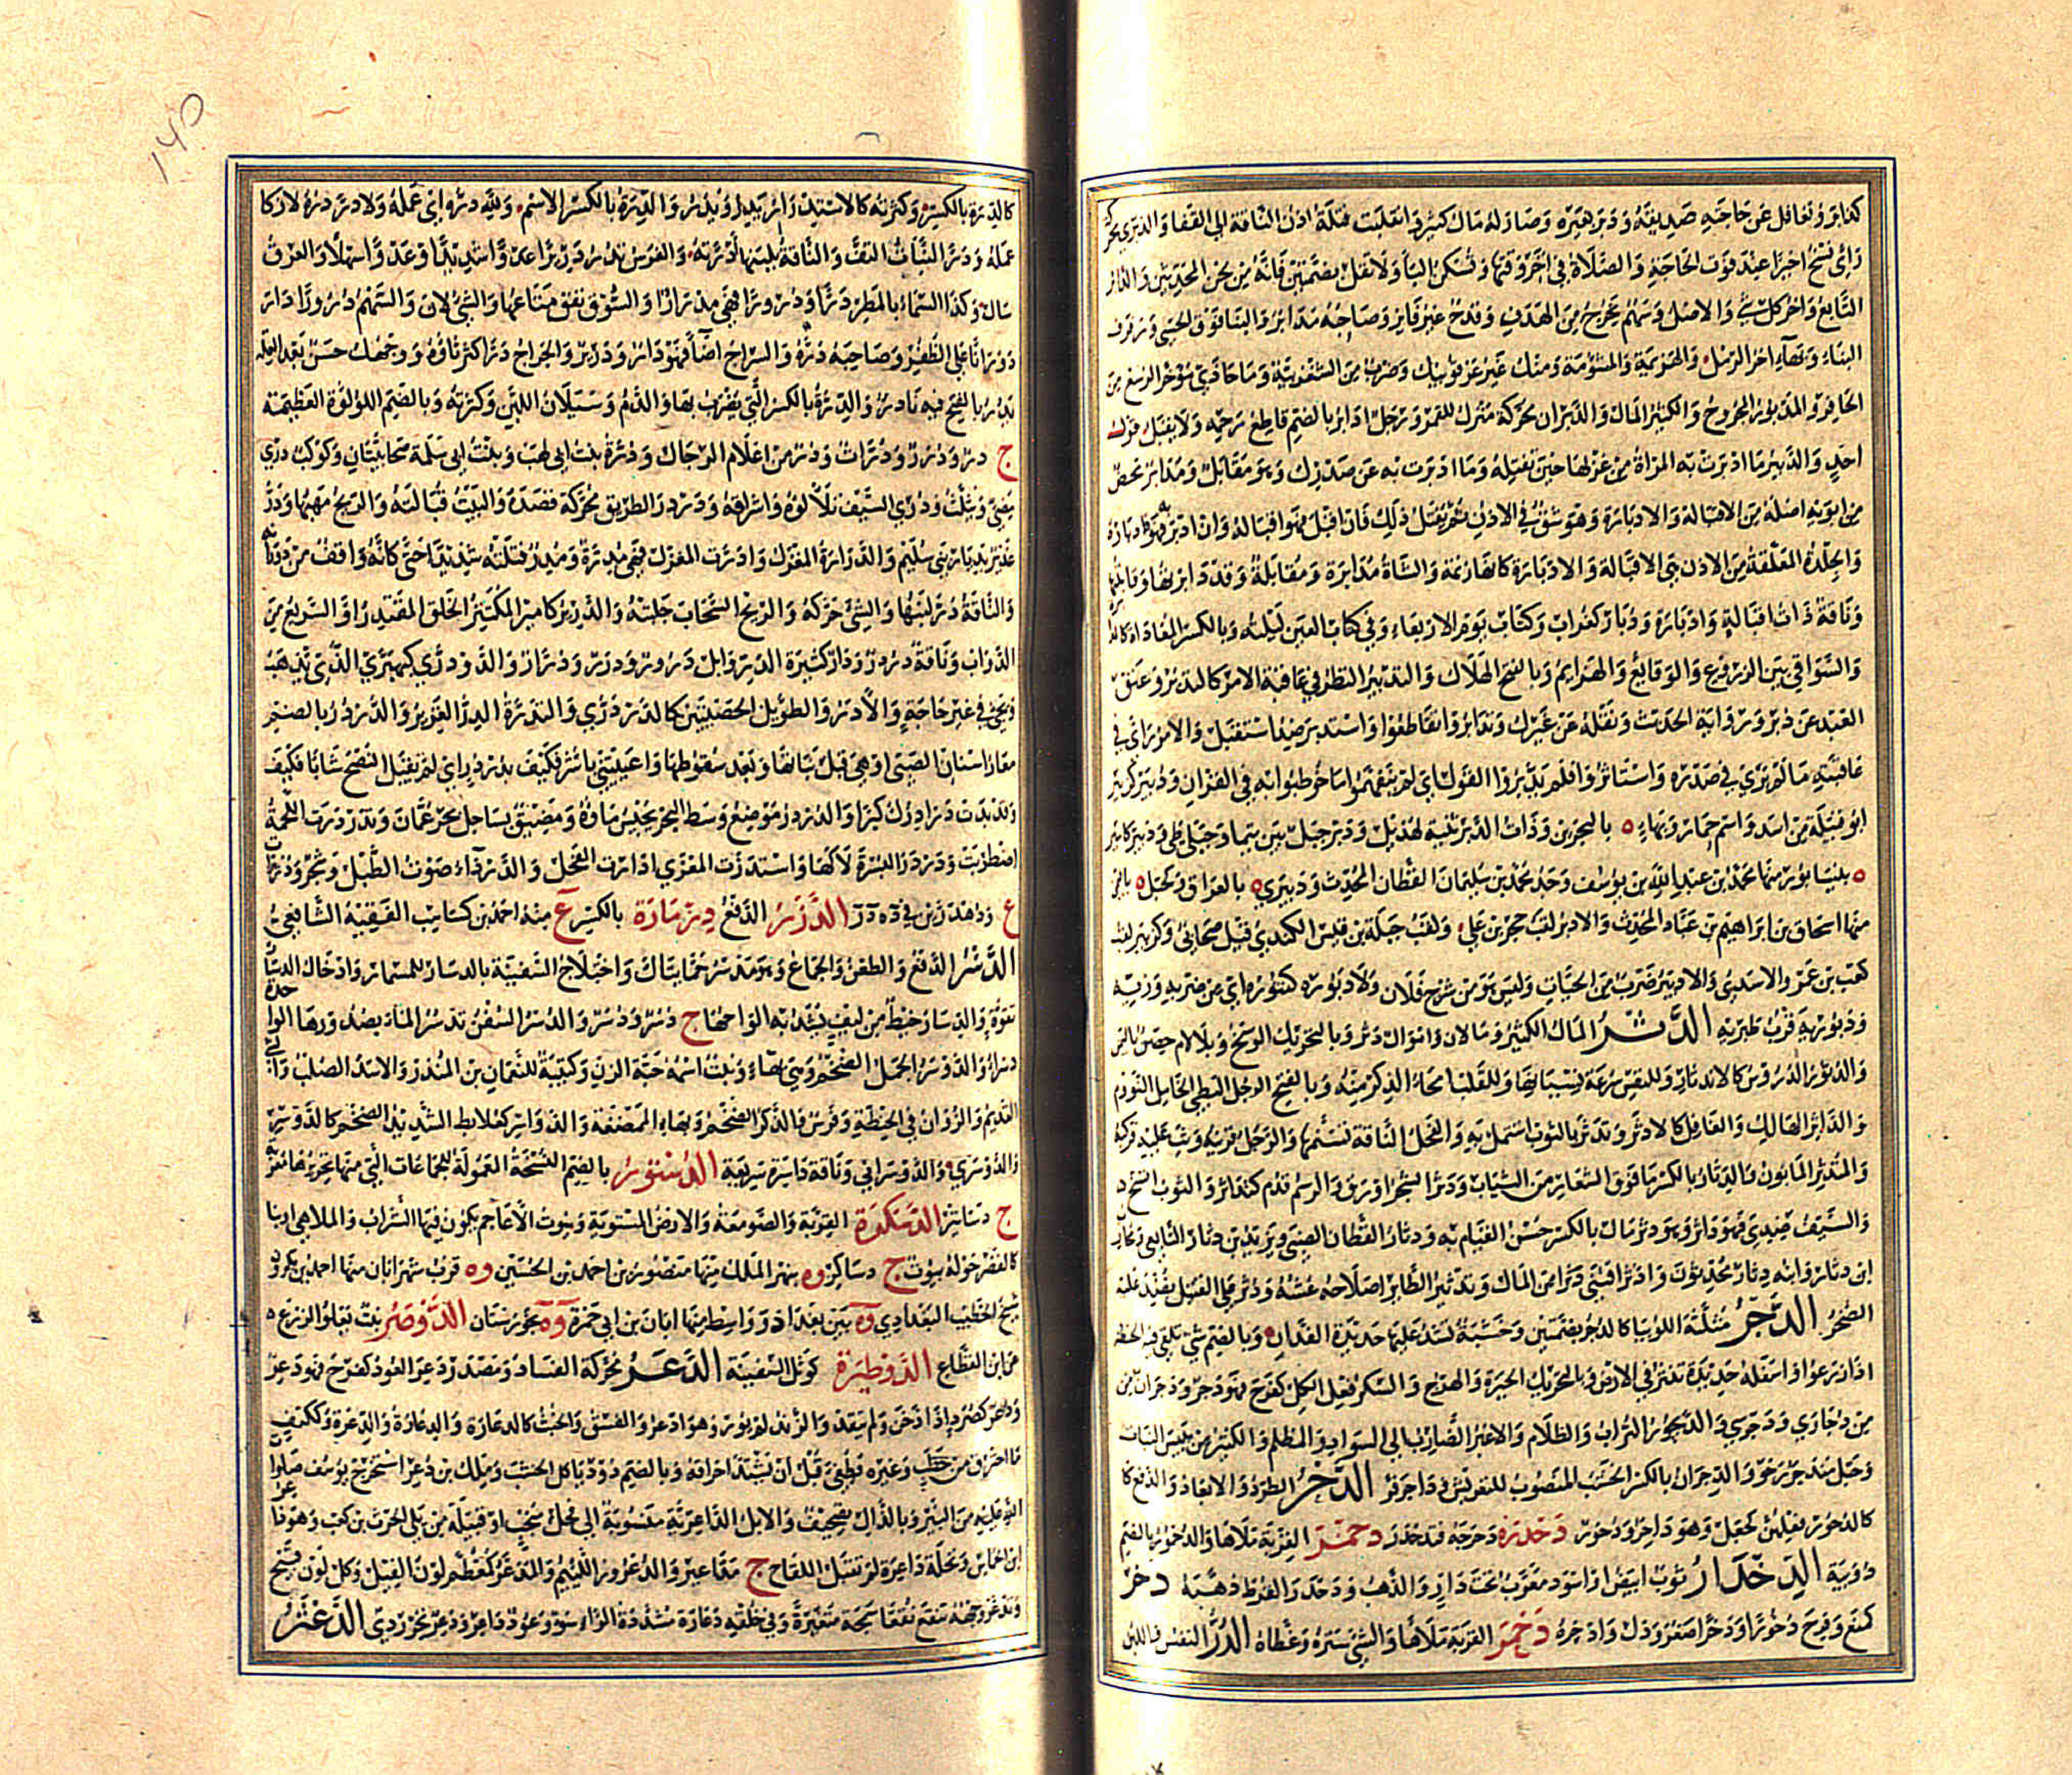 كدابر وتغافل عن حاجة صديقه ودبر بعيره وصار له مال كثير وانقلبت فتلة اذن الناقة الى القفا والدبري محر
رأي نسخ اخيرا عند فوت الحاجة والصلاة في اخر وقتها وتسكن الباء ولا تقل بضمتين فانه من لحن المحدثين والدابر
التابع واخر كل شيء والاصل وسهم يخرج من الهدف وقدح غير فايز وصاحبه مدابر والبنا فوق الحسي ورفرف
البناء وبهاء اخر الرمل والهزيمة والمشومة ومنك غير عرقوبك وضرب من الشغزبية وما حاذى مؤخر الرسغ من
الحافر والمدبور المجروح والكثير المال والدبران محركة منزل للقمر ورجل ادابر بالضم قاطع رحمه ولا يقبل قول
احد والدبير ما ادبرت به المراة من غزلها حين تفتله وما ادبرت به عن صدرك وهو مقابل ومدابر محض
من ابويه اصله من الاقبالة والادبارة وهو شق في الاذن ثم يفتل ذلك فان اقبل فهو اقبالة وان ادبر فهو ادبارة
والجلدة المعلقة من الاذن هي الاقبالة والادبارة كانها زنمة والشاة مدابرة ومقابلة وقد دابرتها وقابلتها
وناقة ذات اقبالة وادبارة ودبار كغراب وكتاب يوم الاربعاء وفي كتاب العين ليلته وبالكسر المعاداة كالمدا
والسواقي بين الزروع والوقائع والهزايم وبالفتح الهلاك والتدبير النظر في عاقبة الامر كالتدبر وعتق
العبد عن دبر ورواية الحديث ونقله عن غيرك وتدابروا تقاطعوا واستدبر ضد استقبل والامر رأى في
عاقبته ما لم ير في صدره واستاثر وافلم يدبروا القول اي لم يتفهموا ما خوطبوا به في القران ودبير كزبير
ابو قبيلة من اسد واسم حمار وبهاء ه بالبحرين وذات الدبر ثنية لهذيل ودبر جبل بين تيما وجبلي طي ودبير كامير
ه بنيسابور منها محمد بن عبد الله بن يوسف وجد محمد بن سليمان القطان المحدث ودبيري ه بالعراق وكجبل ه باليمن
منها اسحاق بن ابراهيم بن عباد المحدث والادبر لقب حجر بن عدي ولقب جبلة بن قيس الكندي قيل صحابي وكزبير لقب
كعب بن عمرو الاسدي والاديبر ضرب من الحيات وليس هو من شرج فلان ولا دبوره كتنوره اي من ضربه وزيه
ودبورية قرب طبرية الدثر المال الكثير ومالان واموال دثر وبالتحريك الوسخ وبلا لام حصن باليمن
والدثور الدروس كالاندثار وللنفس سرعة نسيانها وللقلب امحاء الذكر منه وبالفتح الرجل البطي الخامل النؤوم
والداثر الهالك والغافل كالادثر وتدثر بالثوب اشتمل به والفحل الناقة تسنمها والرجل قرنه وثب عليه فركبه
والمتدثر المابون والدثار بالكسر ما فوق الشعار من الثياب ودثر الشجر اورق والرسم قدم كتداثر والثوب اتسخ
والسيف صدي فهو داثر وهو دثر مال بالكسر حسن القيام به ودثار القطان الضبي ويزيد بن دثار التابعي ومحارب
ابن دثار وابنه دثار محدثون وادثر اقتنى دثرا من المال وتدثير الطاير اصلاحه عشه ودثر على القتيل نضد عليه
الصخر الدجر مثلثة اللوبيا كالدجر بضمتين وخشبة تشد عليها حديدة الفدان وبالضم شيء يلقى فيه الحنطة
اذا زرعوا واسفله حديدة تنتثر في الارض وبالتحريك الحيرة والهرج والسكر فعل الكل كفرح فهو دجر ودجران من
من دجارى ودجرى والديجور التراب والظلام والاغبر الضارب الى السواد والمظلم والكثير من يبيس النبات
وحبل مندجر رخو والدجران بالكسر الخشب المنصوب للتعريش وداجر فر الدحر الطرد والابعاد والدفع كا
كالدحور فعلهن كجعل وهو داحر ودحور دحدره دحرجه فتدحدر دحمر القربة ملاها والدحمور بالضم
دويبة الدخدار ثوب ابيض او اسود معرب تخت دار اي والذهب ودخدر القرط ذهبه دخر
كمنع وفرح دخورا ودخرا صغر وذل وادخره دخمر القربة ملاها والشيء ستره وغطاه الدر النفس واللبن
كالدرة بالكسر وكثرته كالاستدرار يدر ويدر والدرة بالكسر الاسم ولله دره اي عمله ولا در دره لا زكا
عمله ودر النبات التف والناقة بلبنها ادرته والفرس يدر دريرا عدا شديدا او عدوا سهلا والعرق
سال وكذا السماء بالمطر درا ودرورا فهي مدرار والسوق نفق متاعها والشيء لان والسهم درورا دار
دورانا على الظفر وصاحبه ادره والسراج اضا فهو دار ودرير والخراج درا كثر اتاؤه ووجهك حسن بعد العلة
يدر بالفتح فيه نادر والدرة بالكسر التي يضرب بها والدم وسيلان اللبن وكثرته وبالضم اللؤلؤة العظيمة
ج در ودرر ودرات ودر من اعلام الرجال ودرة بنت ابي لهب وبنت ابي سلمة صحابيتان وكوكب دري
مضي ويثلث ودري السيف تلالؤه واشراقه ودرر الطريق محركة قصده والبيت قبالته والريح مهبها ودر
غدير بديار بني سليم والدرارة المغزل وادرت المغزل فهي مدرة ومدر فتلته شديدا حتى كانه واقف من دورانه
والناقة در لبنها والشيء حركه والريح السحاب جلبته والدرير كامير المكتنز الخلق المقتدر او السريع من
الدواب وناقة درور ودار كثيرة الدر وابل درر ودرر ودرار والدودري كيهيري الذي يذهب
ويجي في غير حاجة والادر والطويل الخصيتين كالدردري والتدرة الدر الغزير والدردر بالضم
مغارز اسنان الصبي او هي قبل نباتها وبعد سقوطها واعييتني باشر فكيف بدردر اي لم تقبل النصح شابا فكيف
وقد بدت درادرك كبرا والدردور موضع وسط البحر يجيش ماؤه ومضيق بساحل بحر عمان وتدردرت اللحمة
اضطربت ودردر البسرة لاكها واستدرت المعزى ارادت الفحل والدرداء صوت الطبل وشجر ودرر
ع ودهدرين في ده در الدزر الدفع دزمارة بالكسر ع منه احمد بن كشاسب الفقيه الشافعي
الدسر الدفع والطعن والجماع وهو مدسر حما بتاك واصلاح السفينة بالدسار للمسمار وادخال الدسار
بقوة والدسار خيط من ليف يشد به الواحها ج دسر ودسر والدسر السفن تدسر الماء بصدورها الواحدة
دسراء والدوسر الجمل الضخم وهي بهاء ونبت اسمه حبة الزن وكتيبة للنعمان بن المنذر والاسد الصلب وال
القديم والزوان في الحنطة وفرس والذكر الضخم وبهاء المضغة والدواسر كعلابط الشديد الضخم كالدوسر
والدوسري والدوسراني وناقة داسرة سريعة الدستور بالضم النسخة المعمولة للجماعات التي منها تحريرها معربة
ج دساتير الدسكرة القرية والصومعة والارض المستوية وبيوت الاعاجم يكون فيها الشراب والملاهي او بنا
كالقصر حوله بيوت ج دساكر وه بنهر الملك منها منصور بن احمد بن الحسين وه قرب شهرابان منها احمد بن بكرون
شيخ الخطيب البغدادي وه بين بغداد وواسط منها ابان بن ابي حمزة وه بخوزستان الدوصر نبت يعلو الزرع ه
عن ابن القطاع الدوطيرة كوثل السفينة الدعر محركة الفساد ومصدر دعر العود كفرح فهو دعر
ودعر كصرد اذا دخن ولم يتقد والزند لم يور وهو ادعر والفسق والخبث كالدعارة والدعارة والدعرة وككتف
ما احترق من حطب وغيره فطفئ قبل ان يشتد احراقه وبالضم دود ياكل الخشب ومالك بن دعر استخرج يوسف صلوات
الله عليه من البئر وبالذال تصحيف والابل الداعرية منسوبة الى فحل منجب او قبيلة من بني الحرث بن كعب وهو دا
ابن الحماس ونخلة داعرة لم تقبل اللقاح ج مداعير والدعرور اللئيم والمدعر كمعظم لون الفيل وكل لون قبيح
وتدعر وجهه تبقع بقعا سمجة متغيرة وفي خلقه دعارة مشددة الراء سوء وعود داعر ودعر نخر ردي الدعثر